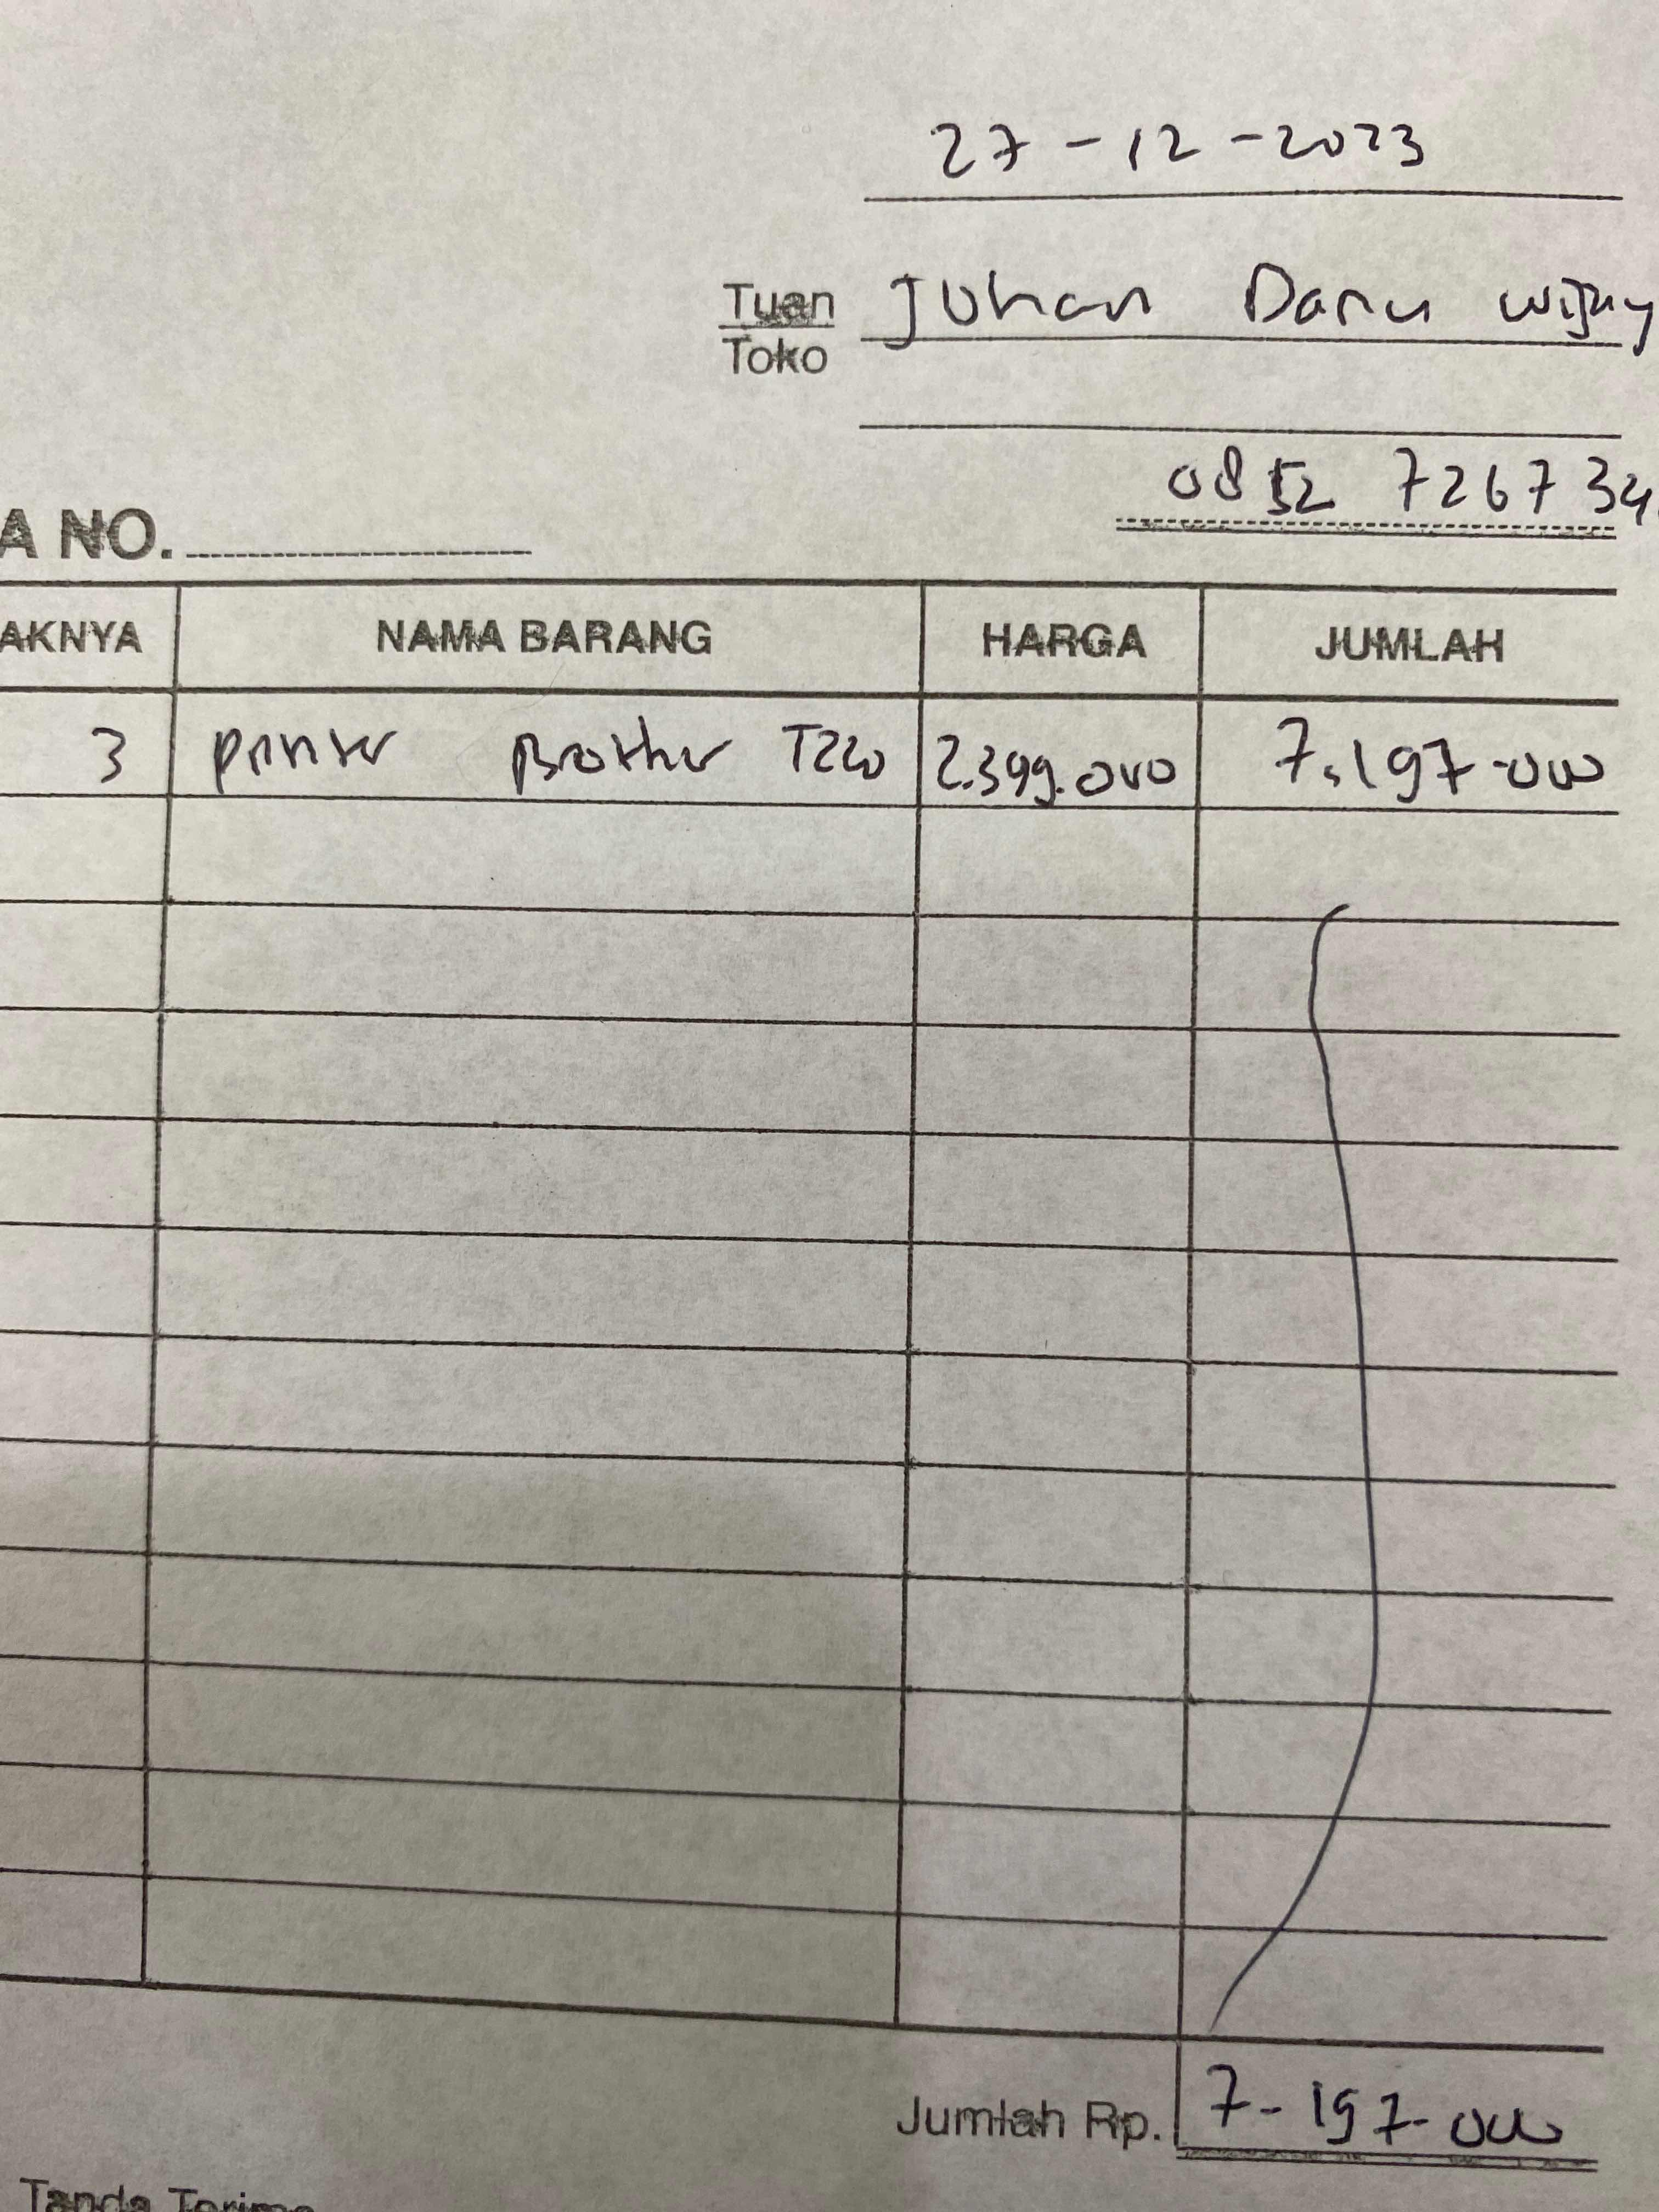 27-12-2023
Tuan Johan Danu wijay
Toko
0852 7267 34
A NO.
AKNYA NAMA BARANG HARGA JUMLAH
3 printer Brother T220 2.399.000 7.197.000
Jumlah Rp. 7-197-000
Tanda Terima